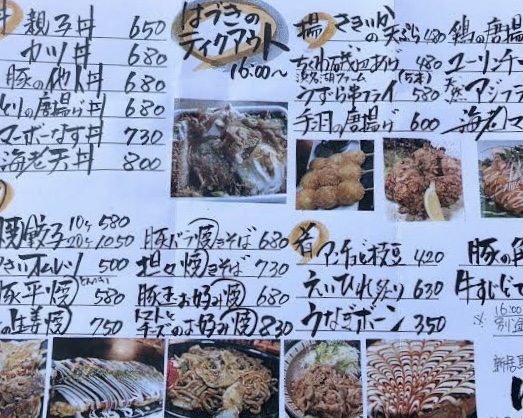 丼
親子丼 650
カツ丼 680
豚の他人丼 680
とりの唐揚げ丼 680
マーボーなす丼 730
海老天丼 800
はづきの
テイクアウト
16:00〜
揚 さきいかの天ぷら 480
ちくわ磯辺揚げ 480
(5本)
うずら串フライ 580
手羽の唐揚げ 600
鶏の唐揚
ユーリンチー
天然 アジフラ
海老マ
焼餃子 10ヶ 580
20ヶ 1050
オムレツ 500
豚平焼 580
の生姜焼 750
豚バラ焼きそば 680
坦々焼きそば 730
豚玉お好み焼 680
トマトと
チーズのお好み焼 830
肴 アンチョビ枝豆 420
えいひれ炙り 630
うなぎボーン 350
豚の角
牛すじ
16:00